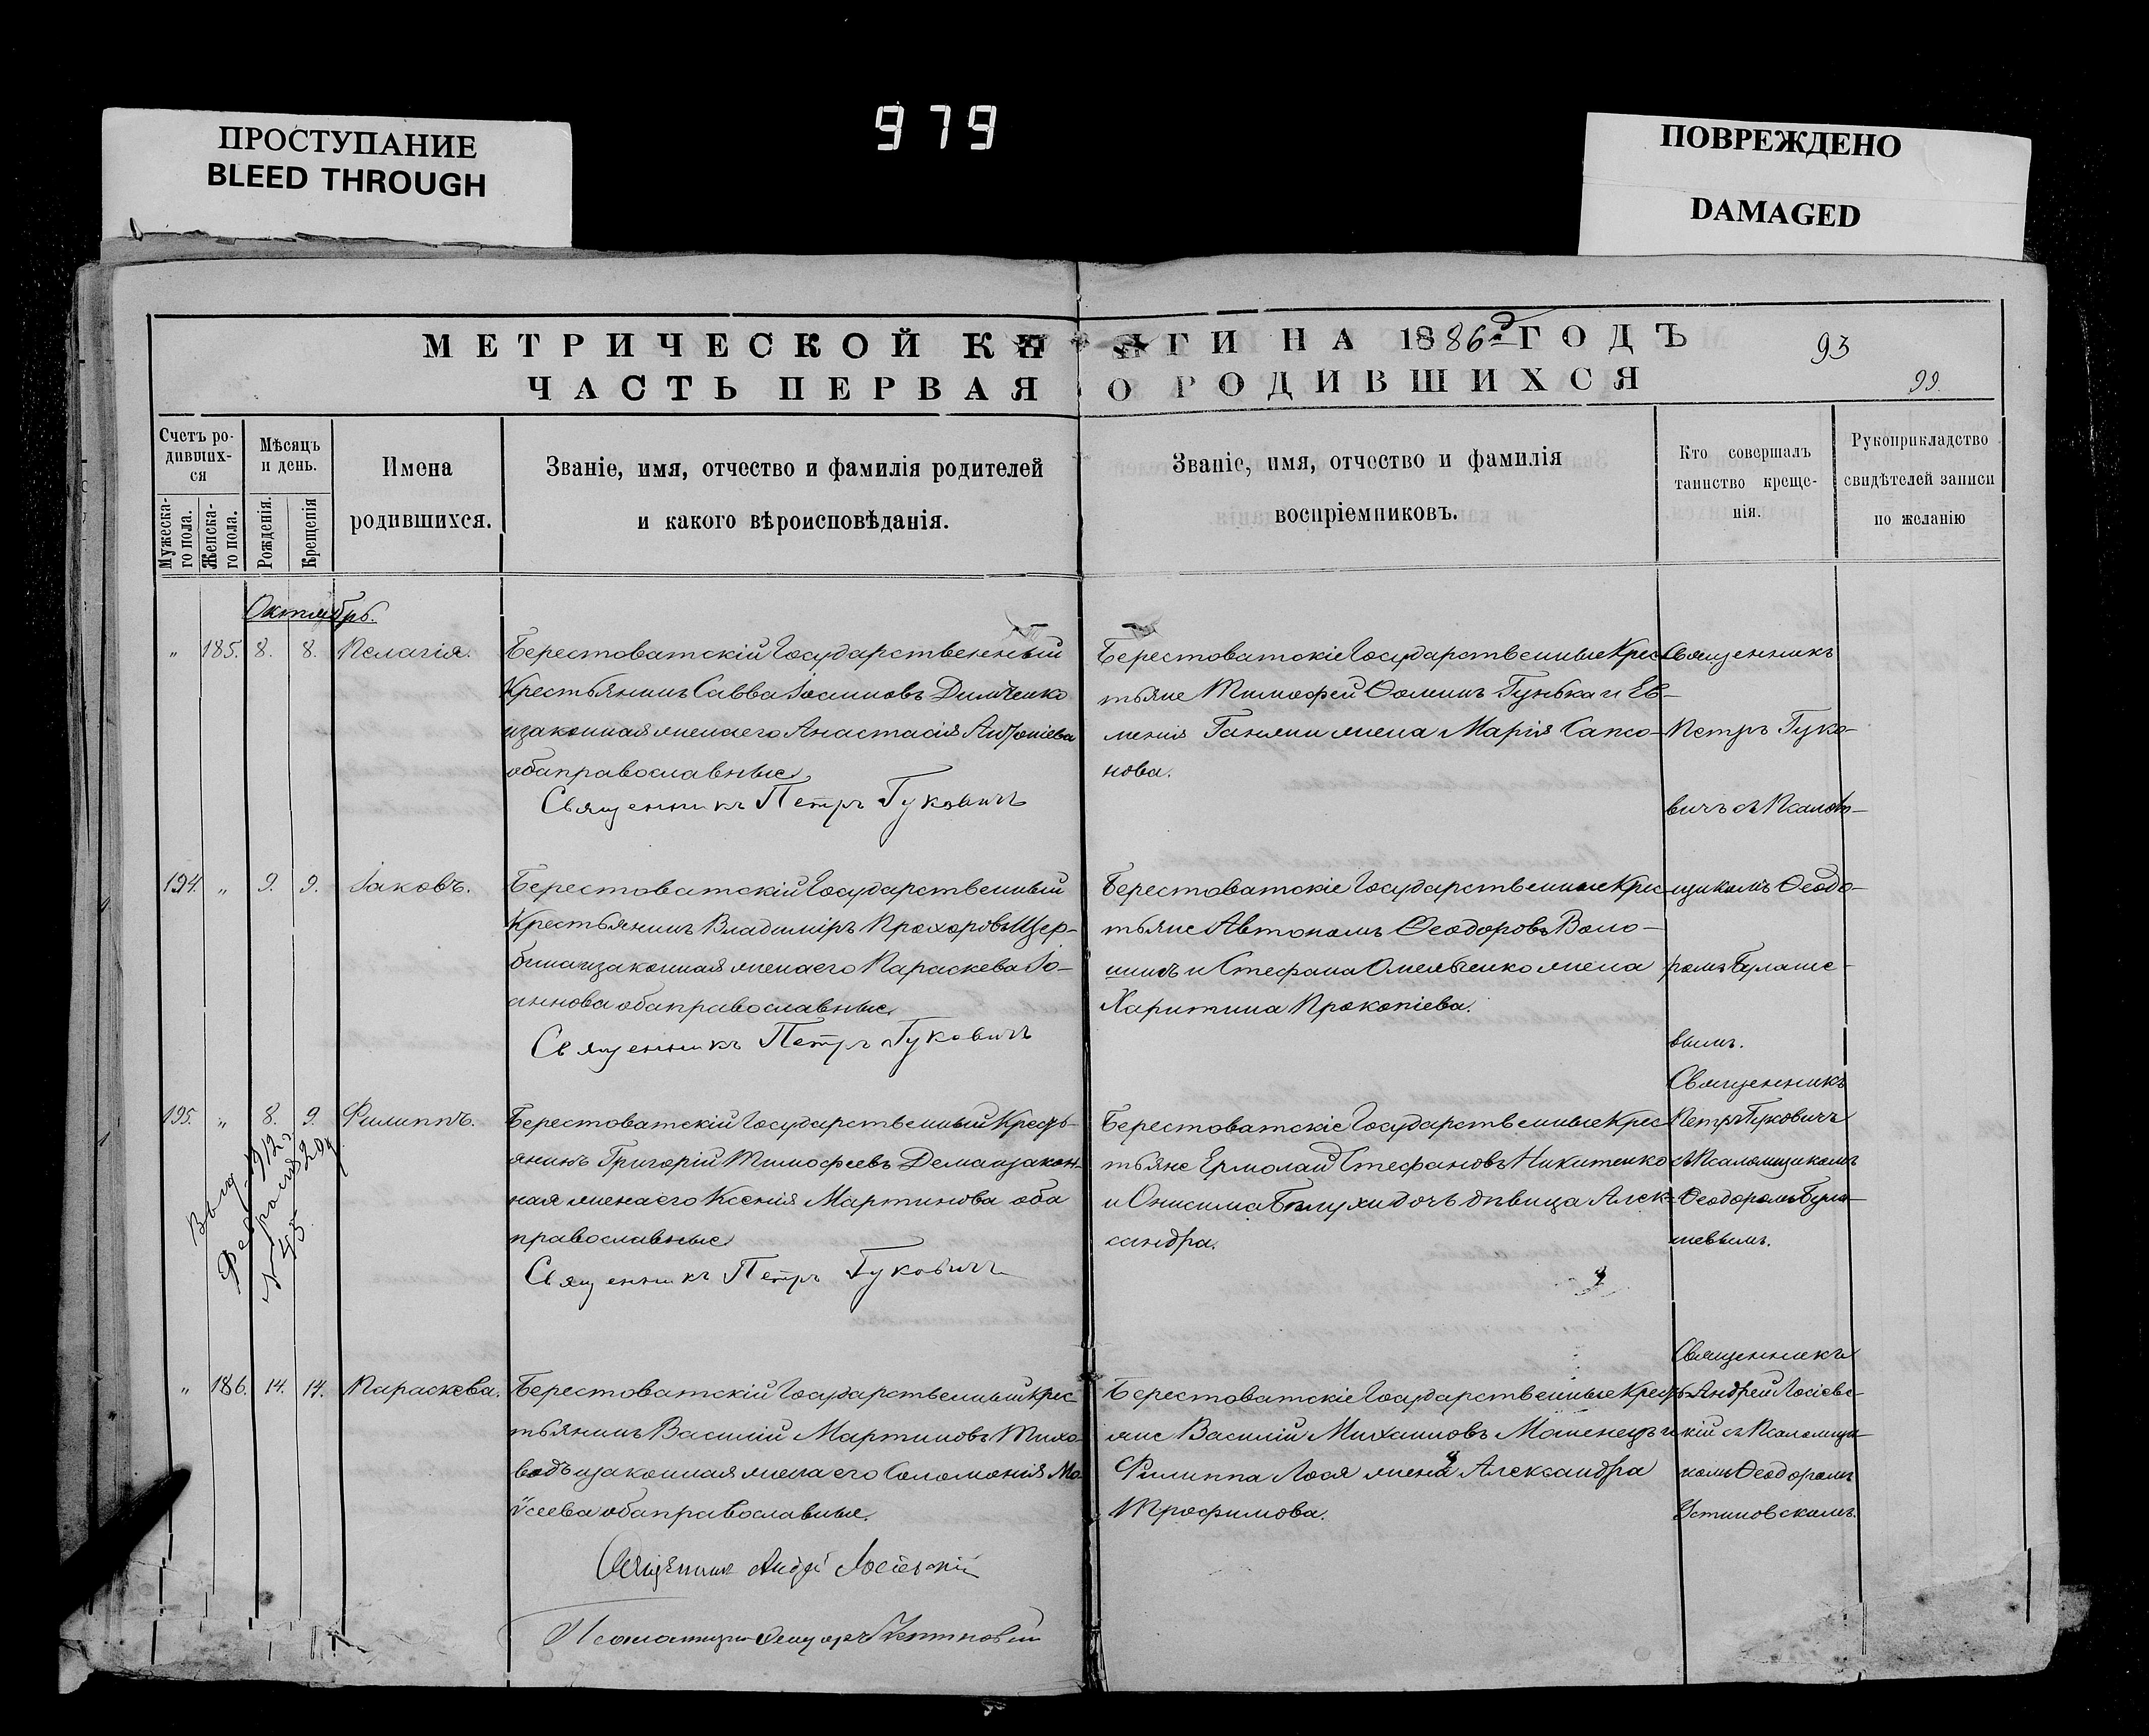 ПРОСТУПАНИЕ
BLEED THROUGH
979
ПОВРЕЖДЕНО
DAMAGED
МЕТРИЧЕСКОЙ КНИГИ НА 1886й ГОДЪ
93
ЧАСТЬ ПЕРВАЯ О РОДИВШИХСЯ
99.
Счетъ ро-
дивших-
ся
Мужеска-
го пола.
Женска-
го пола.
Мѣсяцъ
и день.
Рожденія.
Крещенія
Имена
родившихся.
Званіе, имя, отчество и фамилія родителей
и какого вѣроисповѣданія.
Званіе, имя, отчество и фамилія
воспріемниковъ.
Кто совершалъ
таинство креще-
нія.
Рукоприкладство
свидѣтелей записи
по желанію
Октябрь.
" 185. 8. 8. Пелагія.
Берестоватскій Государственный
Крестьянинъ Савва Іоанновъ
и законная жена его Анастасія Антоніева
оба православные.
Священникъ Петръ Гуковичъ
Берестоватскіе Государственные Крес-
тьяне Тимофей Ѳоминъ Гунька и Ев-
менія жена Марія Сапсо-
нова.
Священникъ
Петръ Гуко-
вичъ съ Псалом-
щикомъ Ѳеодо-
ромъ Булаше-
вымъ.
194. " 9. 9. Іаковъ.
Берестоватскій Государственный
Крестьянинъ Владиміръ Прохоровъ Щер-
бина и законная жена его Параскева Іо-
аннова оба православные.
Священникъ Петръ Гуковичъ
Берестоватскіе Государственные Крес-
тьяне Автономъ Ѳеодоровъ Воло-
шинъ и Стефана Омельченко жена
Харитина Прокопіева.
195. " 8. 9. Филиппъ.
Выд
912
N 45
204
Берестоватскій Государственный Кресть-
янинъ Григорій Тимофеевъ Дема и закон-
ная жена его Ксенія Мартинова оба
православные.
Священникъ Петръ Гуковичъ
Берестоватскіе Государственные Крес-
тьяне Ермолай Стефановъ Никитенко
и Онисима Бѣлухи дочь дѣвица Алек-
сандра.
Священникъ
Петръ Гуковичъ
съ Псаломщикомъ
Ѳеодоромъ Була-
шевымъ.
" 186. 14. 14. Параскева.
Берестоватскій Государственный Крес-
тьянинъ Василій Мартиновъ Тихо-
водъ и законная жена его Соломонія Мо-
ѵсеева оба православные.
Священникъ Андрей Лосіевскій
Псаломщикъ Ѳеодоръ Устиновскій
Берестоватскіе Государственные Кресть-
яне Василій Михаиловъ Мошенецъ и
Филиппа Лося жена Александра
Трофимова.
Священникъ
Андрей Лосіевс-
кій съ Псаломщи-
комъ Ѳеодоромъ
Устиновскимъ.